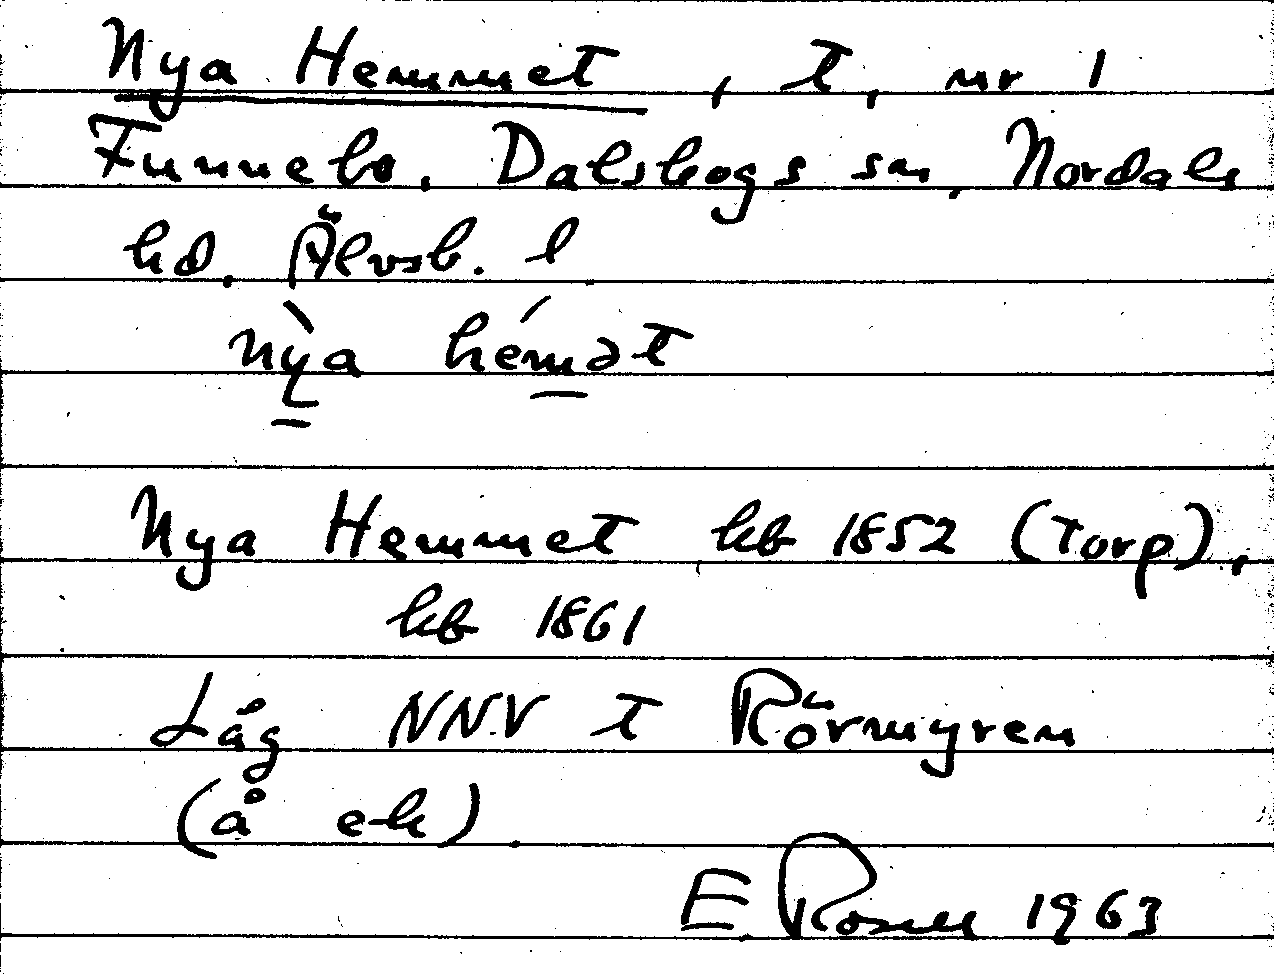 Nya Hemmet, t, nr 1
Funnebo. Dalskogs sn, Nordals
hd. Älvsb. l
nỳa hémət
Nya Hemmet hfb 1852 (Torp),
hfb 1861
Låg NNV t Rörmyren
(å e-k).
E. Rosell 1963